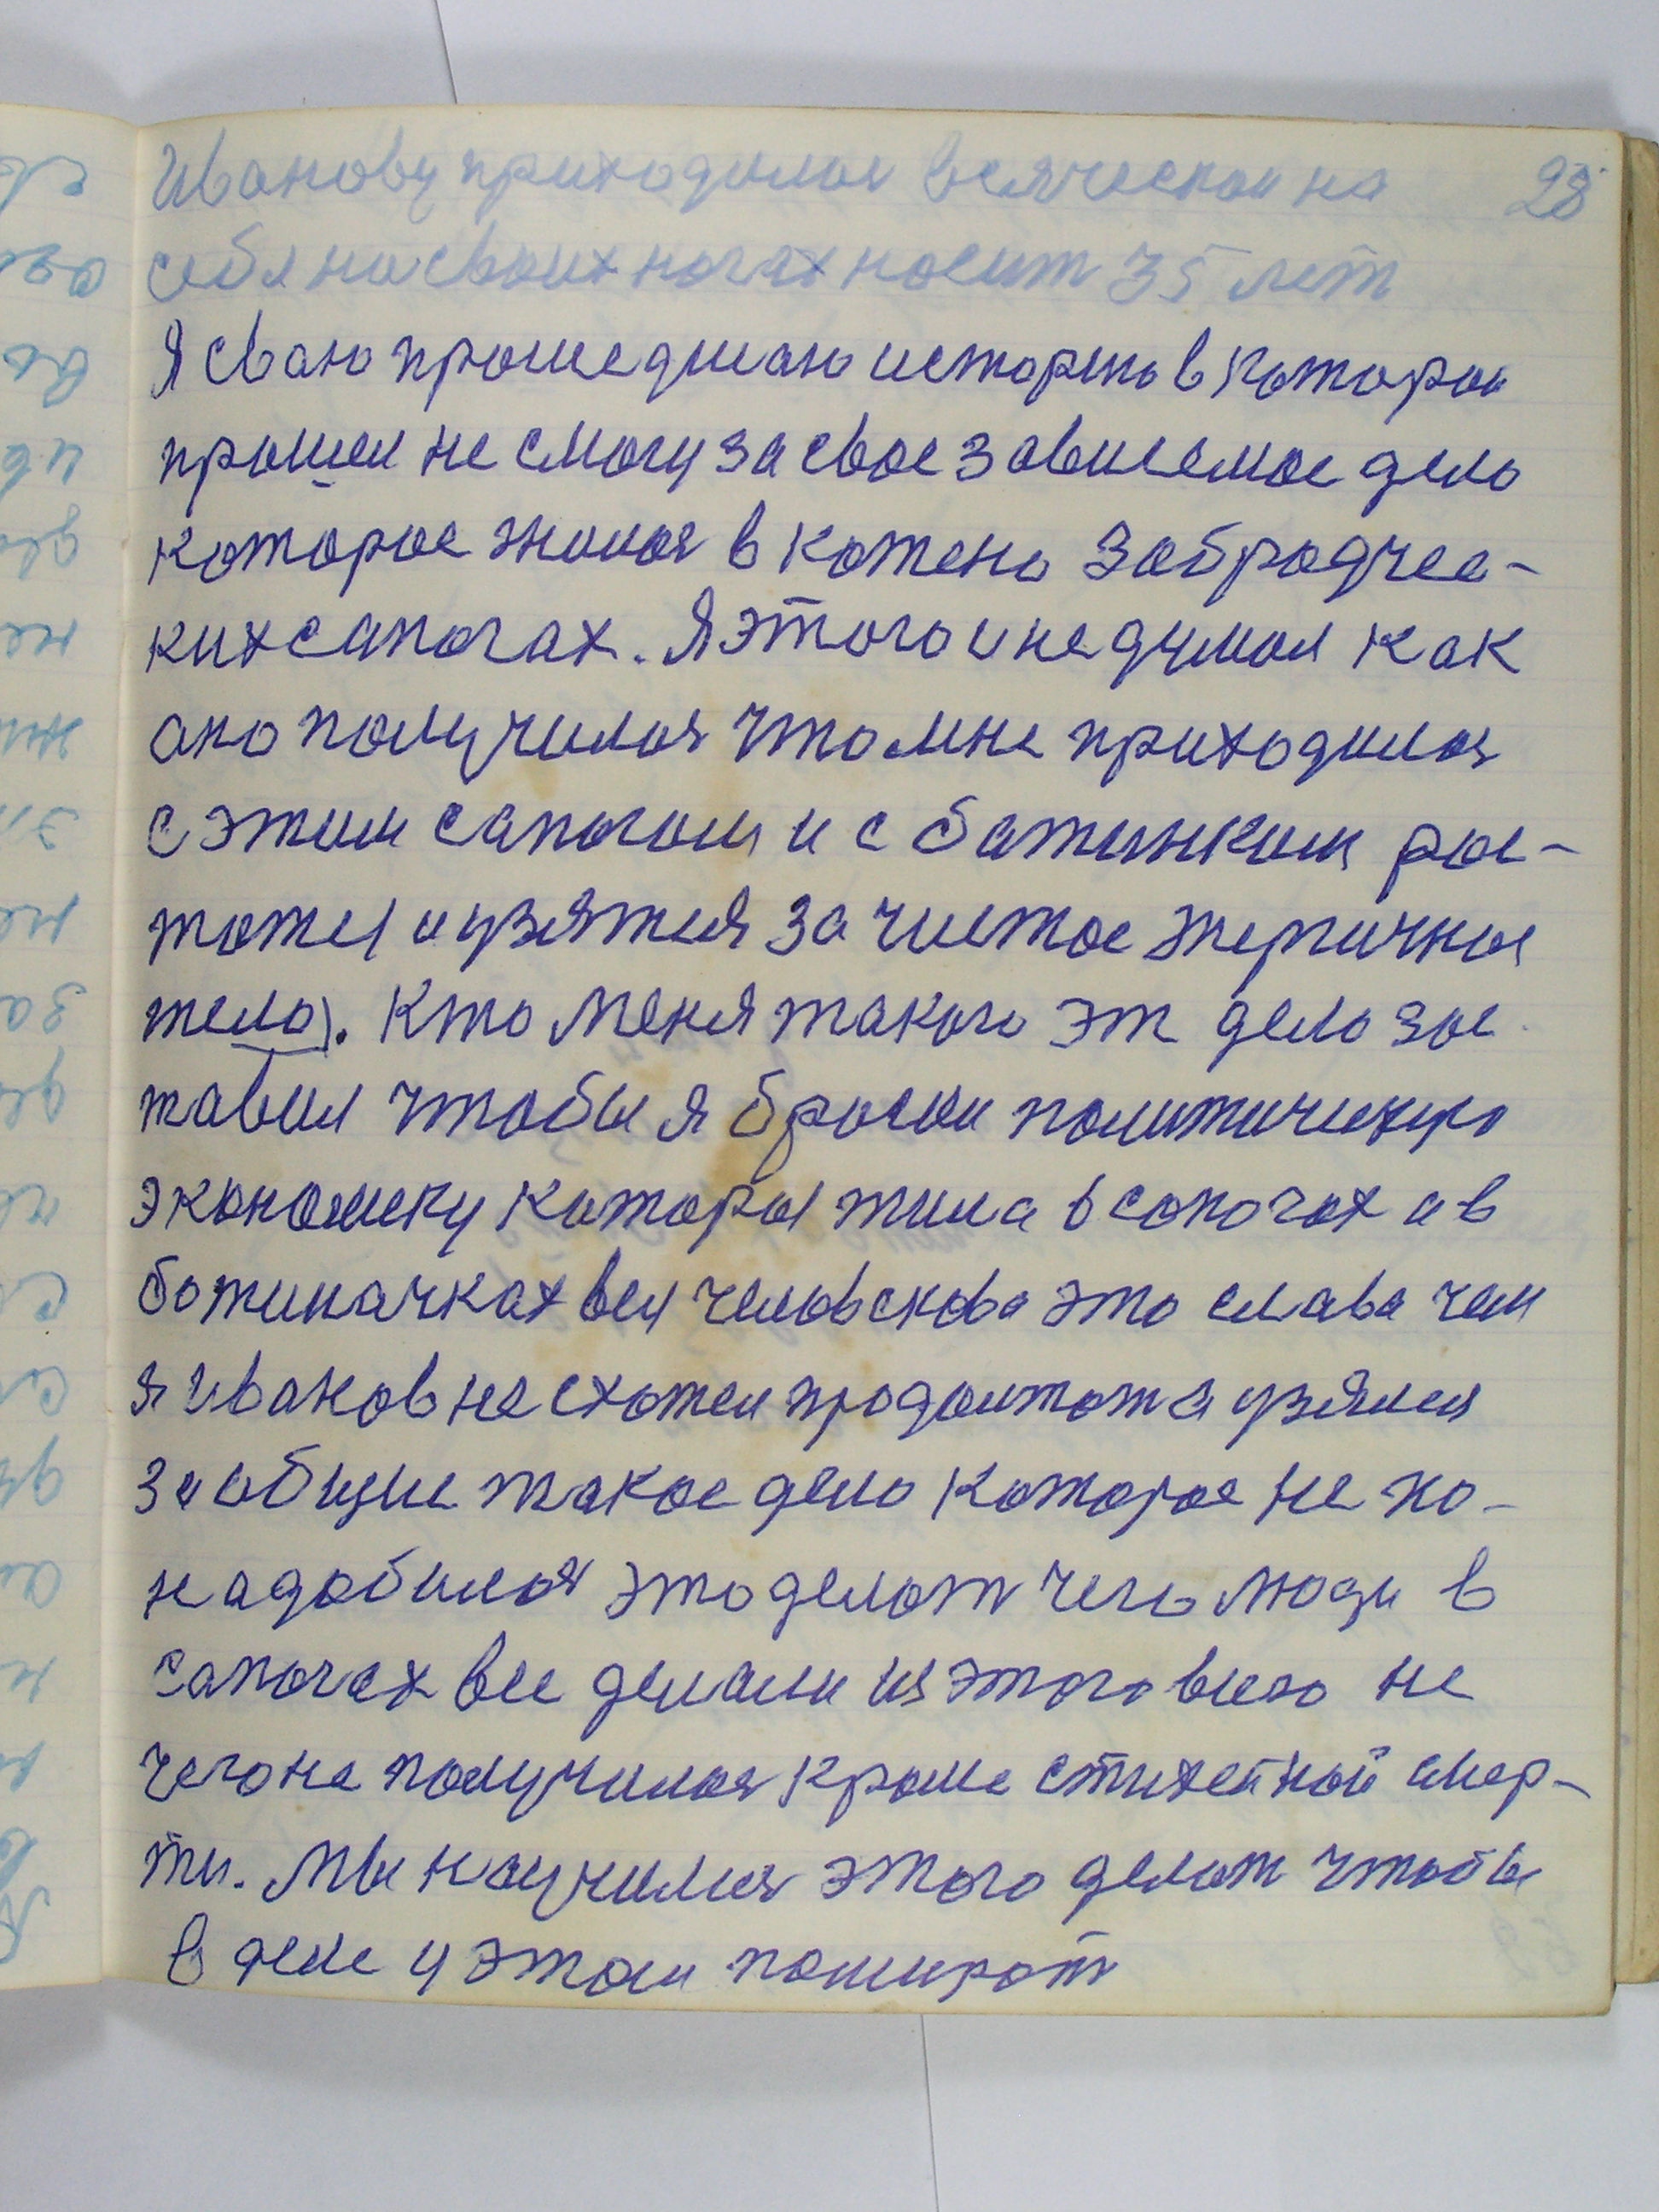 Иванову приходилося всяческаи на 28
себя на своих ногах носит 35 лет
Я сваю прошедшаю исторею в каторой
прошел не смогу за свое зависемое дело
каторое жилося в кожено забродчес-
ких сапогах. Я этого и не думал как
ано получилося что мне приходился
с этим сапогом и с батинким рас-
тожся и узятся за чистое энергичное
тело). Кто меня такого эт дело зас
тавил чтобы я бросил политическую
экономеку каторая жила в сапогах и в
ботиначках вся человекова это слава чем
я Иванов не схотел продолжат а узялся
за общие такое дело каторое не по-
надобилося это делат чего люди в
сапогах все делали из этого всего не
чего не получилося кроме стихейной смер-
ти. Мы научился этого делат чтобы
в деле у этом помират